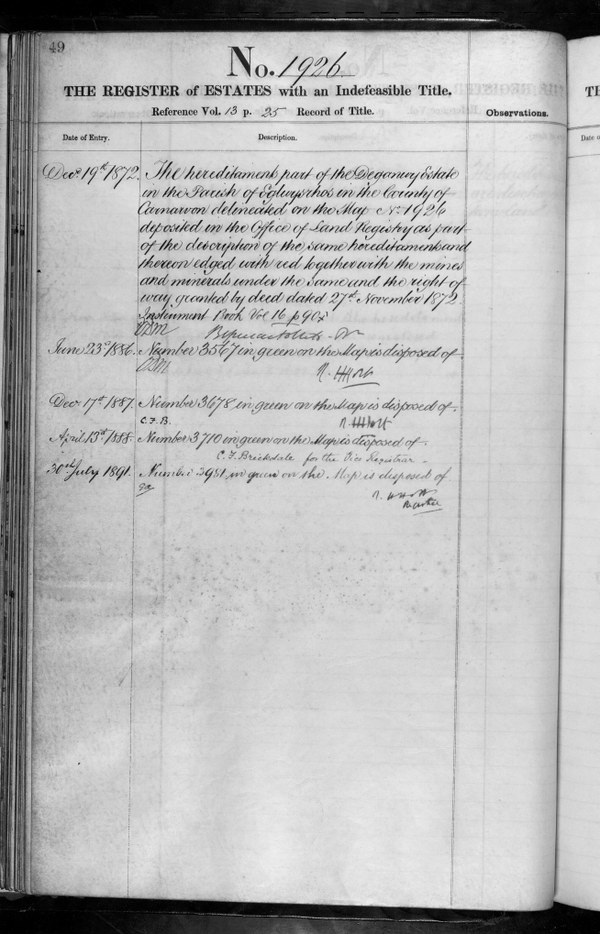 49
No. 1926
THE REGISTER of ESTATES with an Indefeasible Title.
Reference Vol. 13 p. 25 Record of Title.
Observations.
Date of Entry.
Description.
Decr 19th 1872. The hereditament part of the Deganwy Estate
in the Parish of Eglwysrhos in the County of
Carnarvon delineated on the Map No. 1926
deposited in the Office of Land Registry as part
of the description of the same hereditament and
thereon edged with red together with the mines
and minerals under the same and the right of
way granted by deed dated 27th November 1872.
Instrument Book Vol 16 p 90
June 23d 1886. Number 3567 in green on the Map is disposed of
Decr 17th 1887. Number 3678 in green on the Map is disposed of.
C.F.B.
April 13th 1888. Number 3710 in green on the Map is disposed of.
C. F. Brickdale for the Vice Registrar
30th July 1891. Number 3951 in green on the Map is disposed of